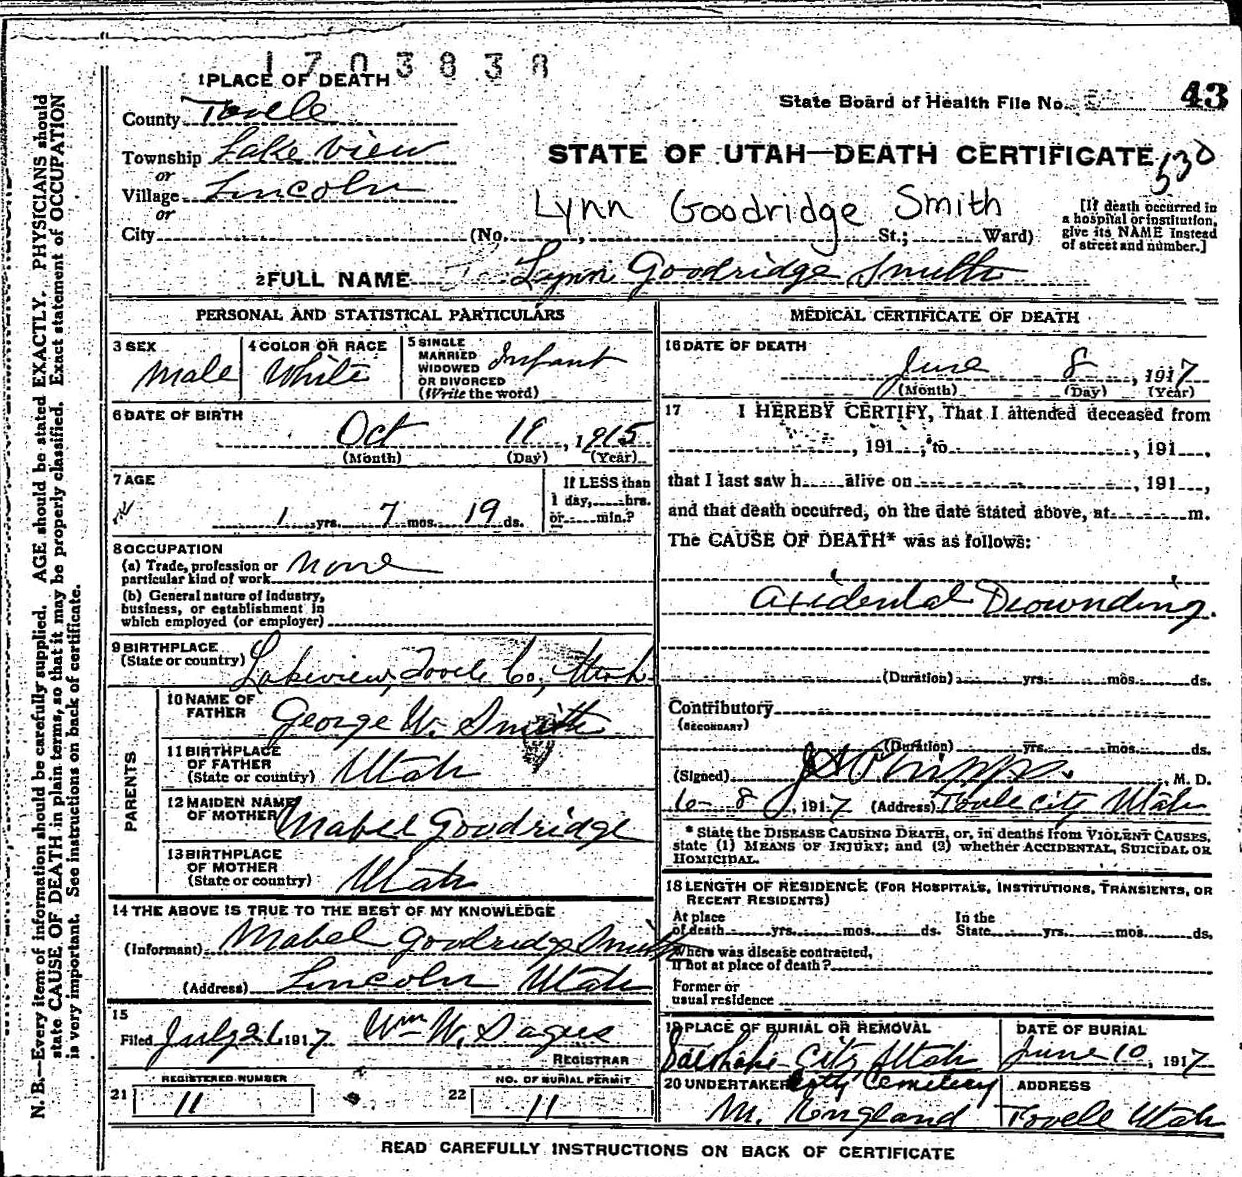 1703838
1 PLACE OF DEATH
State Board of Health File No. 43
County Tooele
Township Lake View
or
Village Lincoln
or
City (No. , St.; Ward)
STATE OF UTAH—DEATH CERTIFICATE 530
Lynn Goodridge Smith
[If death occurred in
a hospital or institution,
give its NAME instead
of street and number.]
2 FULL NAME Lynn Goodridge Smith
PERSONAL AND STATISTICAL PARTICULARS
3 SEX
Male
4 COLOR OR RACE
White
5 SINGLE
MARRIED
WIDOWED
OR DIVORCED
(Write the word)
Infant
6 DATE OF BIRTH
Oct 19, 1915
(Month) (Day) (Year)
7 AGE
1 yrs. 7 mos. 19 ds.
If LESS than
1 day, hrs.
or min.?
8 OCCUPATION
(a) Trade, profession or
particular kind of work None
(b) General nature of industry,
business, or establishment in
which employed (or employer)
9 BIRTHPLACE
(State or country) Lakeview, Tooele Co., Utah
PARENTS
10 NAME OF
FATHER George W. Smith
11 BIRTHPLACE
OF FATHER
(State or country) Utah
12 MAIDEN NAME
OF MOTHER Mabel Goodridge
13 BIRTHPLACE
OF MOTHER
(State or country) Utah
14 THE ABOVE IS TRUE TO THE BEST OF MY KNOWLEDGE
(Informant) Mabel Goodridge Smith
(Address) Lincoln Utah
15
Filed July 26 1917 Wm W. Sagus
REGISTRAR
REGISTERED NUMBER
21 11
NO. OF BURIAL PERMIT
22 11
MEDICAL CERTIFICATE OF DEATH
16 DATE OF DEATH
June 8, 1917
(Month) (Day) (Year)
17 I HEREBY CERTIFY, That I attended deceased from
, 191 , to , 191 ,
that I last saw h alive on , 191 ,
and that death occurred, on the date stated above, at m.
The CAUSE OF DEATH* was as follows:
axidental Drownding.
(Duration) yrs. mos. ds.
Contributory
(SECONDARY)
(Duration) yrs. mos. ds.
(Signed) J A Phipps. , M. D.
6-8, 1917 (Address) Tooele City Utah
* State the DISEASE CAUSING DEATH, or, in deaths from VIOLENT CAUSES,
state (1) MEANS OF INJURY; and (2) whether ACCIDENTAL, SUICIDAL OR
HOMICIDAL.
18 LENGTH OF RESIDENCE (FOR HOSPITALS, INSTITUTIONS, TRANSIENTS, OR
RECENT RESIDENTS)
At place
of death yrs. mos. ds.
In the
State yrs. mos. ds.
Where was disease contracted,
if not at place of death?
Former or
usual residence
19 PLACE OF BURIAL OR REMOVAL
City Utah
City Cemetery
DATE OF BURIAL
June 10, 1917
20 UNDERTAKER
M. England
ADDRESS
Tooele Utah
READ CAREFULLY INSTRUCTIONS ON BACK OF CERTIFICATE
N. B.—Every item of information should be carefully supplied. AGE should be stated EXACTLY. PHYSICIANS should
state CAUSE OF DEATH in plain terms, so that it may be properly classified. Exact statement of OCCUPATION
is very important. See instructions on back of certificate.